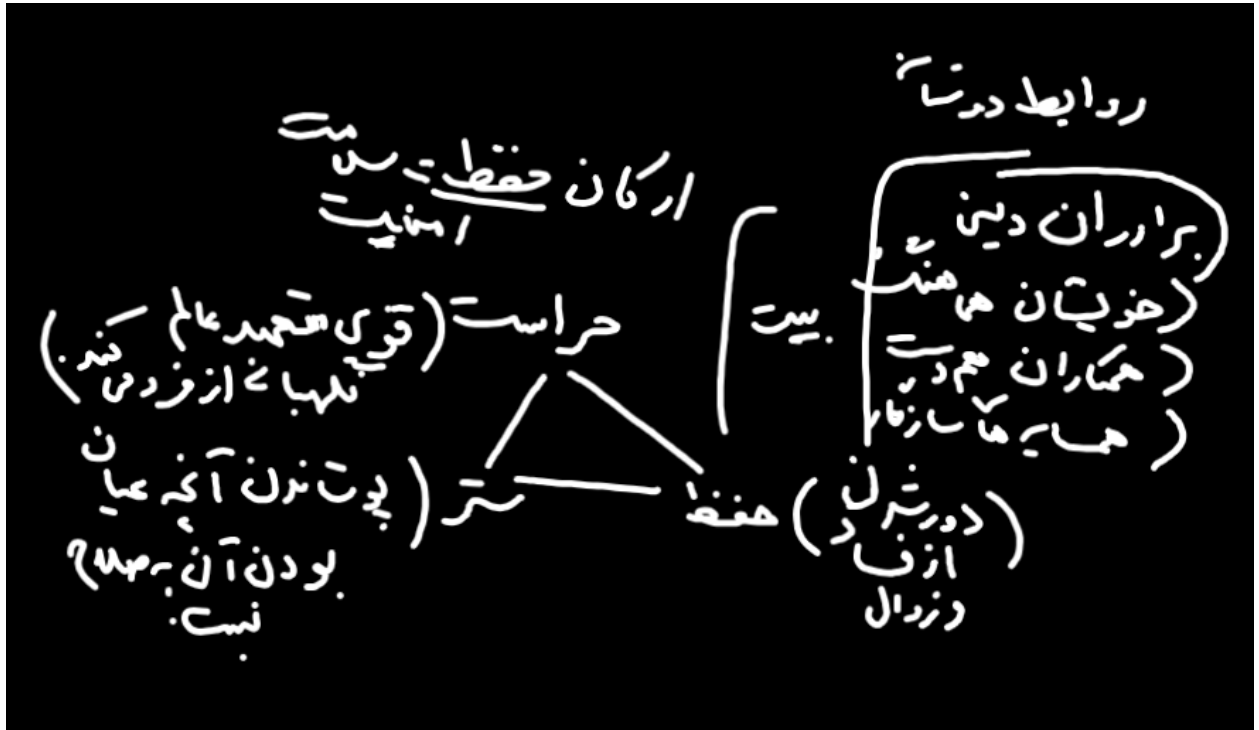 روابط دوستانه
برادران دینی
(خویشان هماهنگ
(همکاران هم‌دست
(همسایه‌های سازگار
بیت
ارکان حفظ - سلامت
امنیت
حراست (قوی متعهد عالم
نگهبانی از فرد می‌کند.)
ستر (پوشاندن آنچه عیان
بودن آن به صلاح
نیست.
حفظ (دور شدن
از فساد
و زوال)